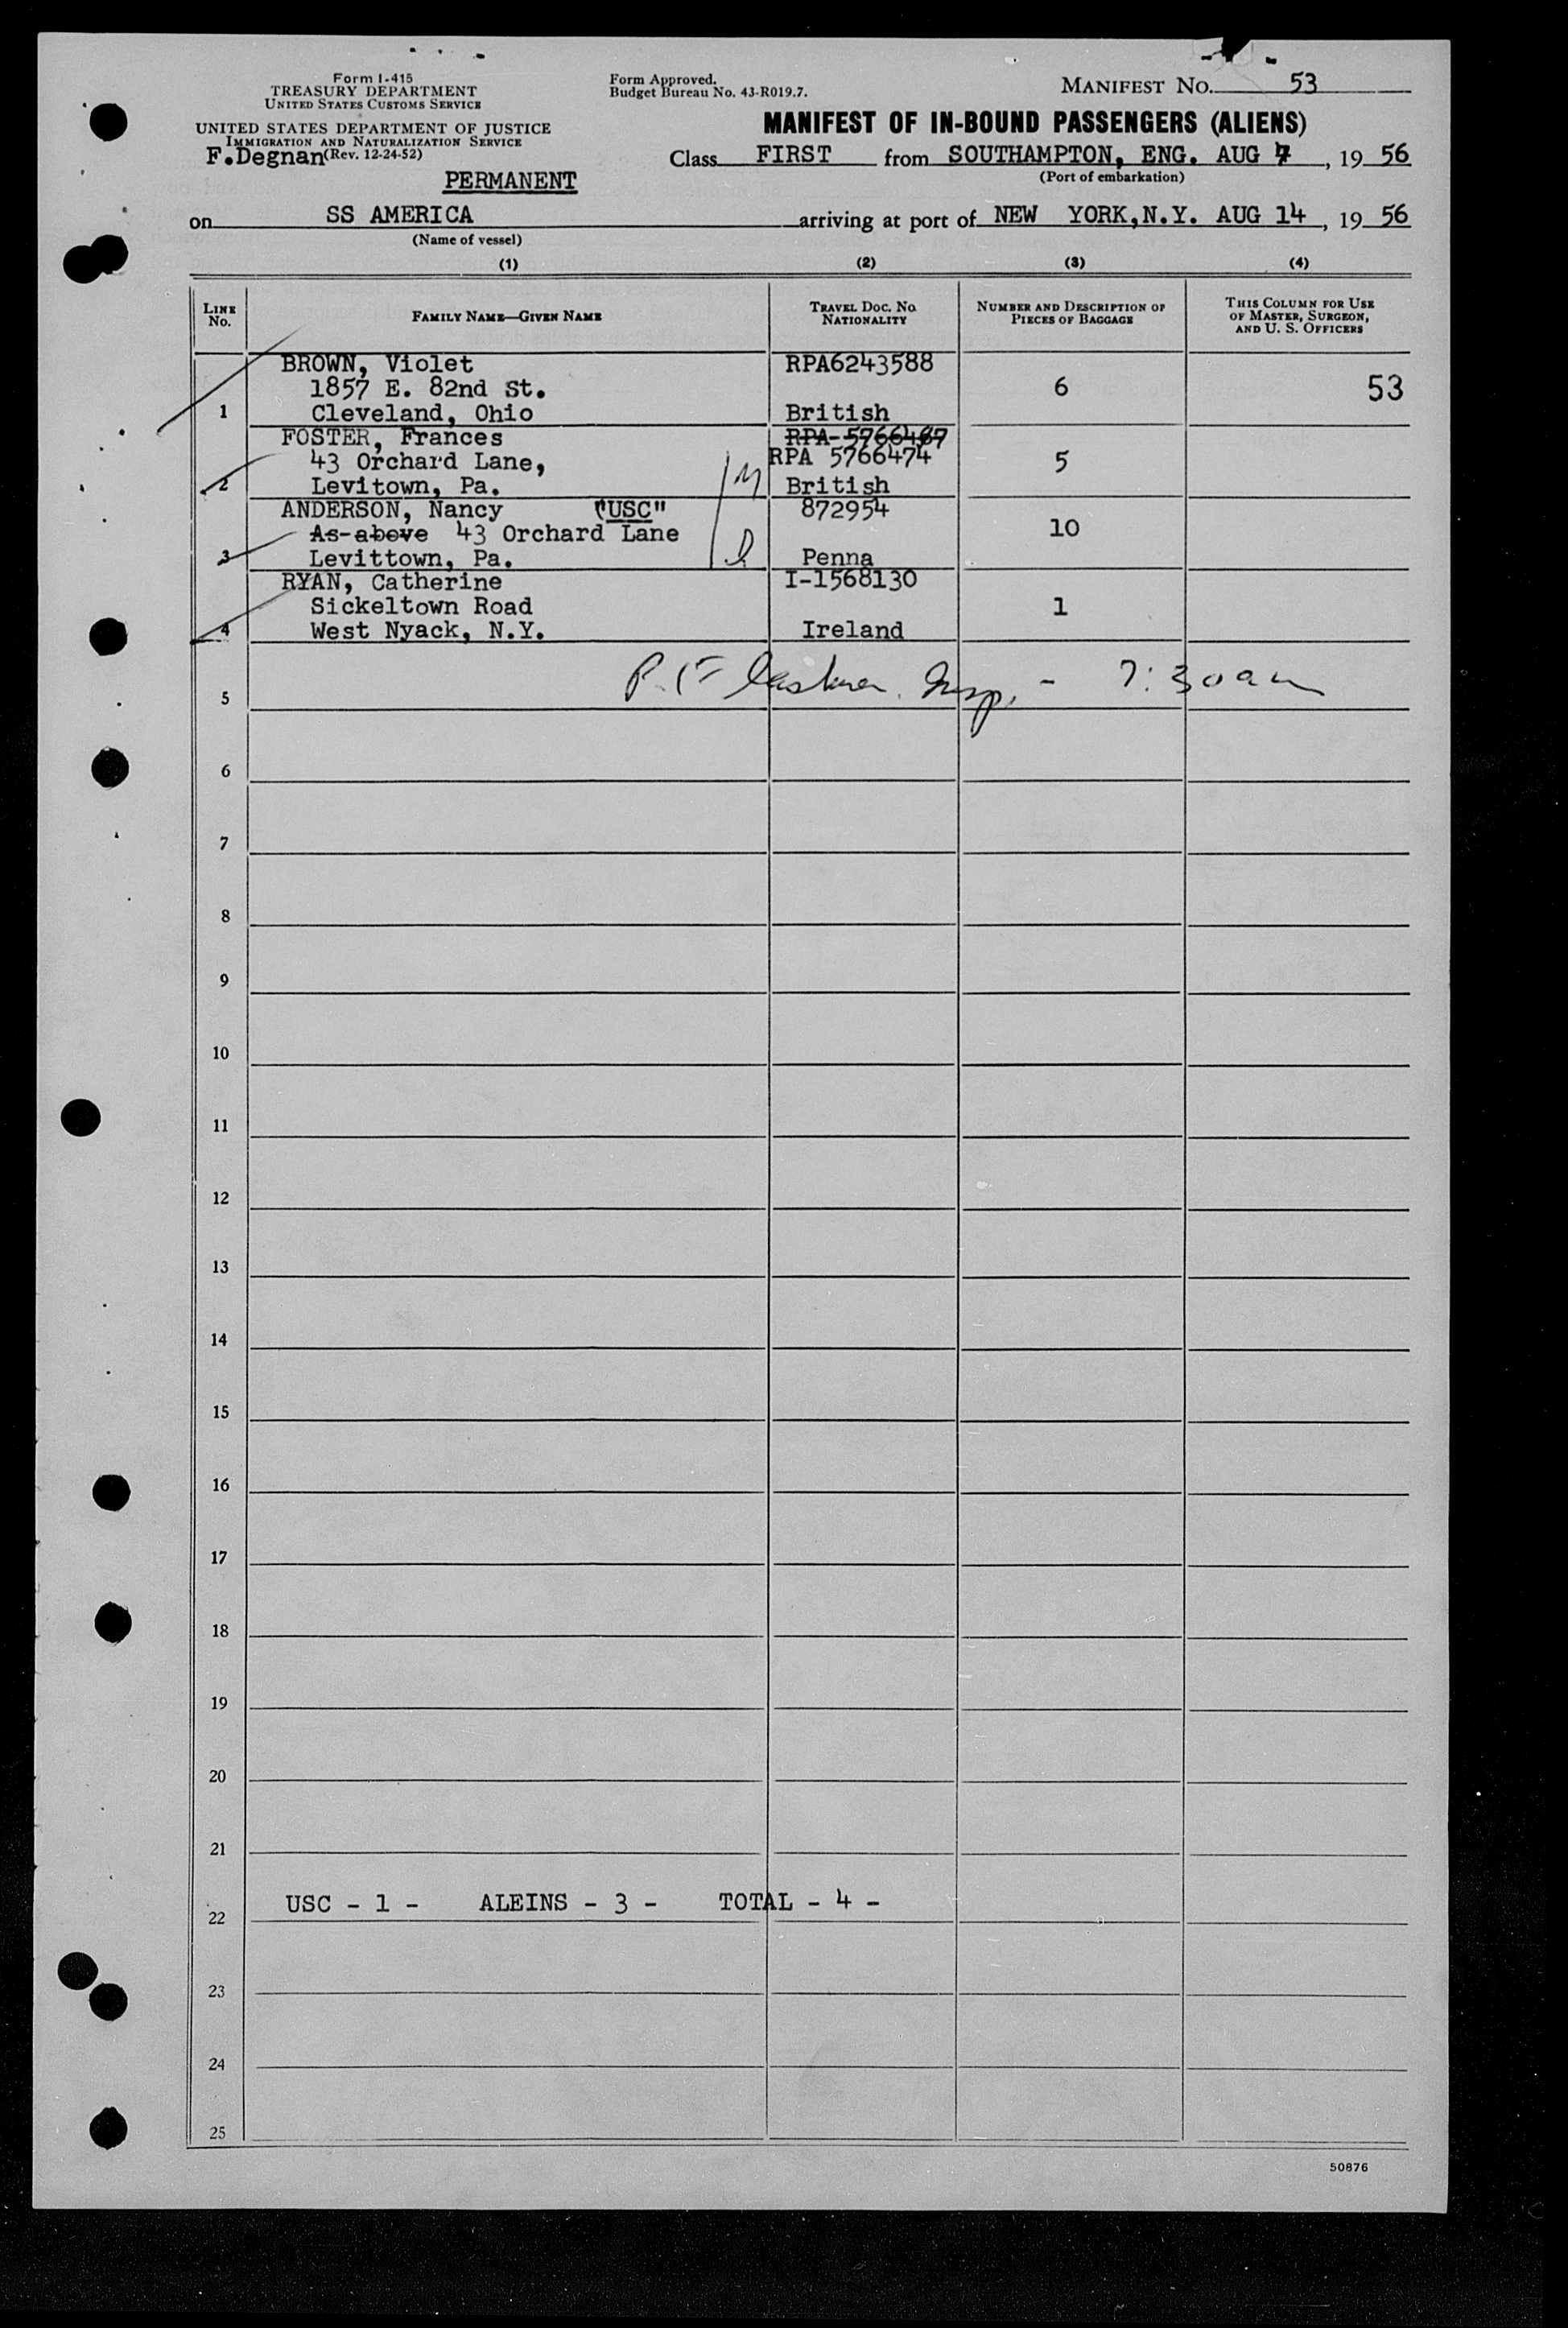 Form I-415
TREASURY DEPARTMENT
UNITED STATES CUSTOMS SERVICE
UNITED STATES DEPARTMENT OF JUSTICE
IMMIGRATION AND NATURALIZATION SERVICE
F.Degnan (Rev. 12-24-52)
PERMANENT
Form Approved.
Budget Bureau No. 43-R019.7.
MANIFEST NO. 53
MANIFEST OF IN-BOUND PASSENGERS (ALIENS)
Class FIRST from SOUTHAMPTON, ENG. AUG 7, 19 56
(Port of embarkation)
on SS AMERICA arriving at port of NEW YORK,N.Y. AUG 14, 19 56
(Name of vessel)
(1) (2) (3) (4)
LINE No.
FAMILY NAME—GIVEN NAME
TRAVEL DOC. NO.
NATIONALITY
NUMBER AND DESCRIPTION OF
PIECES OF BAGGAGE
THIS COLUMN FOR USE
OF MASTER, SURGEON,
AND U. S. OFFICERS
BROWN, Violet RPA6243588
1857 E. 82nd St. 6 53
1 Cleveland, Ohio British
FOSTER, Frances RPA-5766467
43 Orchard Lane, RPA 5766474 5
2 Levitown, Pa. British
ANDERSON, Nancy "USC" 872954
As-above 43 Orchard Lane 10
3 Levittown, Pa. Penna
RYAN, Catherine I-1568130
Sickeltown Road 1
4 West Nyack, N.Y. Ireland
Insp. - 7:30am
5
6
7
8
9
10
11
12
13
14
15
16
17
18
19
20
21
USC - 1 - ALEINS - 3 - TOTAL - 4 -
22
23
24
25
50876